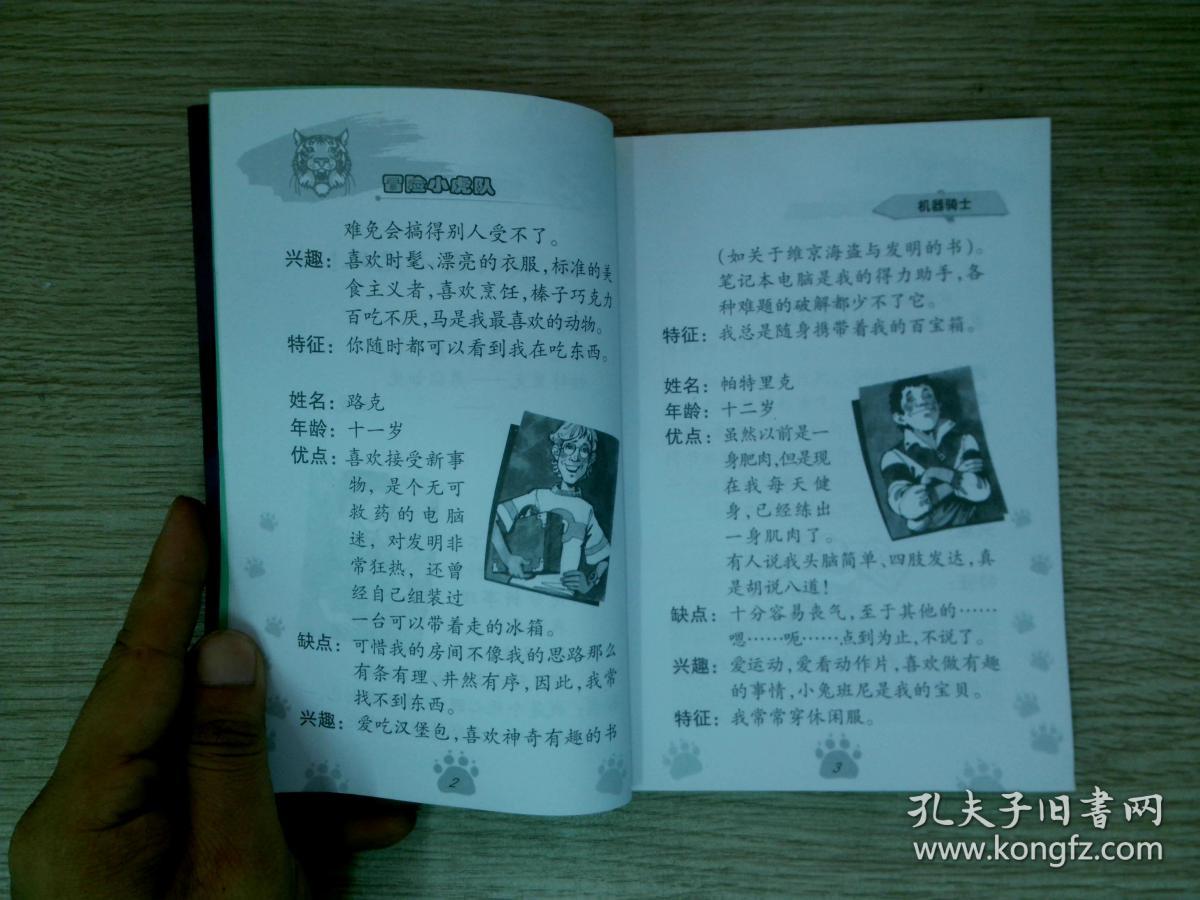 冒险小虎队
难免会搞得别人受不了。
兴趣：喜欢时髦、漂亮的衣服，标准的美
食主义者，喜欢烹饪，榛子巧克力
百吃不厌，马是我最喜欢的动物。
特征：你随时都可以看到我在吃东西。
姓名：路克
年龄：十一岁
优点：喜欢接受新事
物，是个无可
救药的电脑
迷，对发明非
常狂热，还曾
经自己组装过
一台可以带着走的冰箱。
缺点：可惜我的房间不像我的思路那么
有条有理、井然有序，因此，我常
找不到东西。
兴趣：爱吃汉堡包，喜欢神奇有趣的书
2
机器骑士
（如关于维京海盗与发明的书）。
笔记本电脑是我的得力助手，各
种难题的破解都少不了它。
特征：我总是随身携带着我的百宝箱。
姓名：帕特里克
年龄：十二岁
优点：虽然以前是一
身肥肉，但是现
在我每天健
身，已经练出
一身肌肉了。
有人说我头脑简单、四肢发达，真
是胡说八道！
缺点：十分容易丧气，至于其他的……
嗯……呃……点到为止，不说了。
兴趣：爱运动，爱看动作片，喜欢做有趣
的事情，小兔班尼是我的宝贝。
特征：我常常穿休闲服。
3
孔夫子旧書网
www.kongfz.com